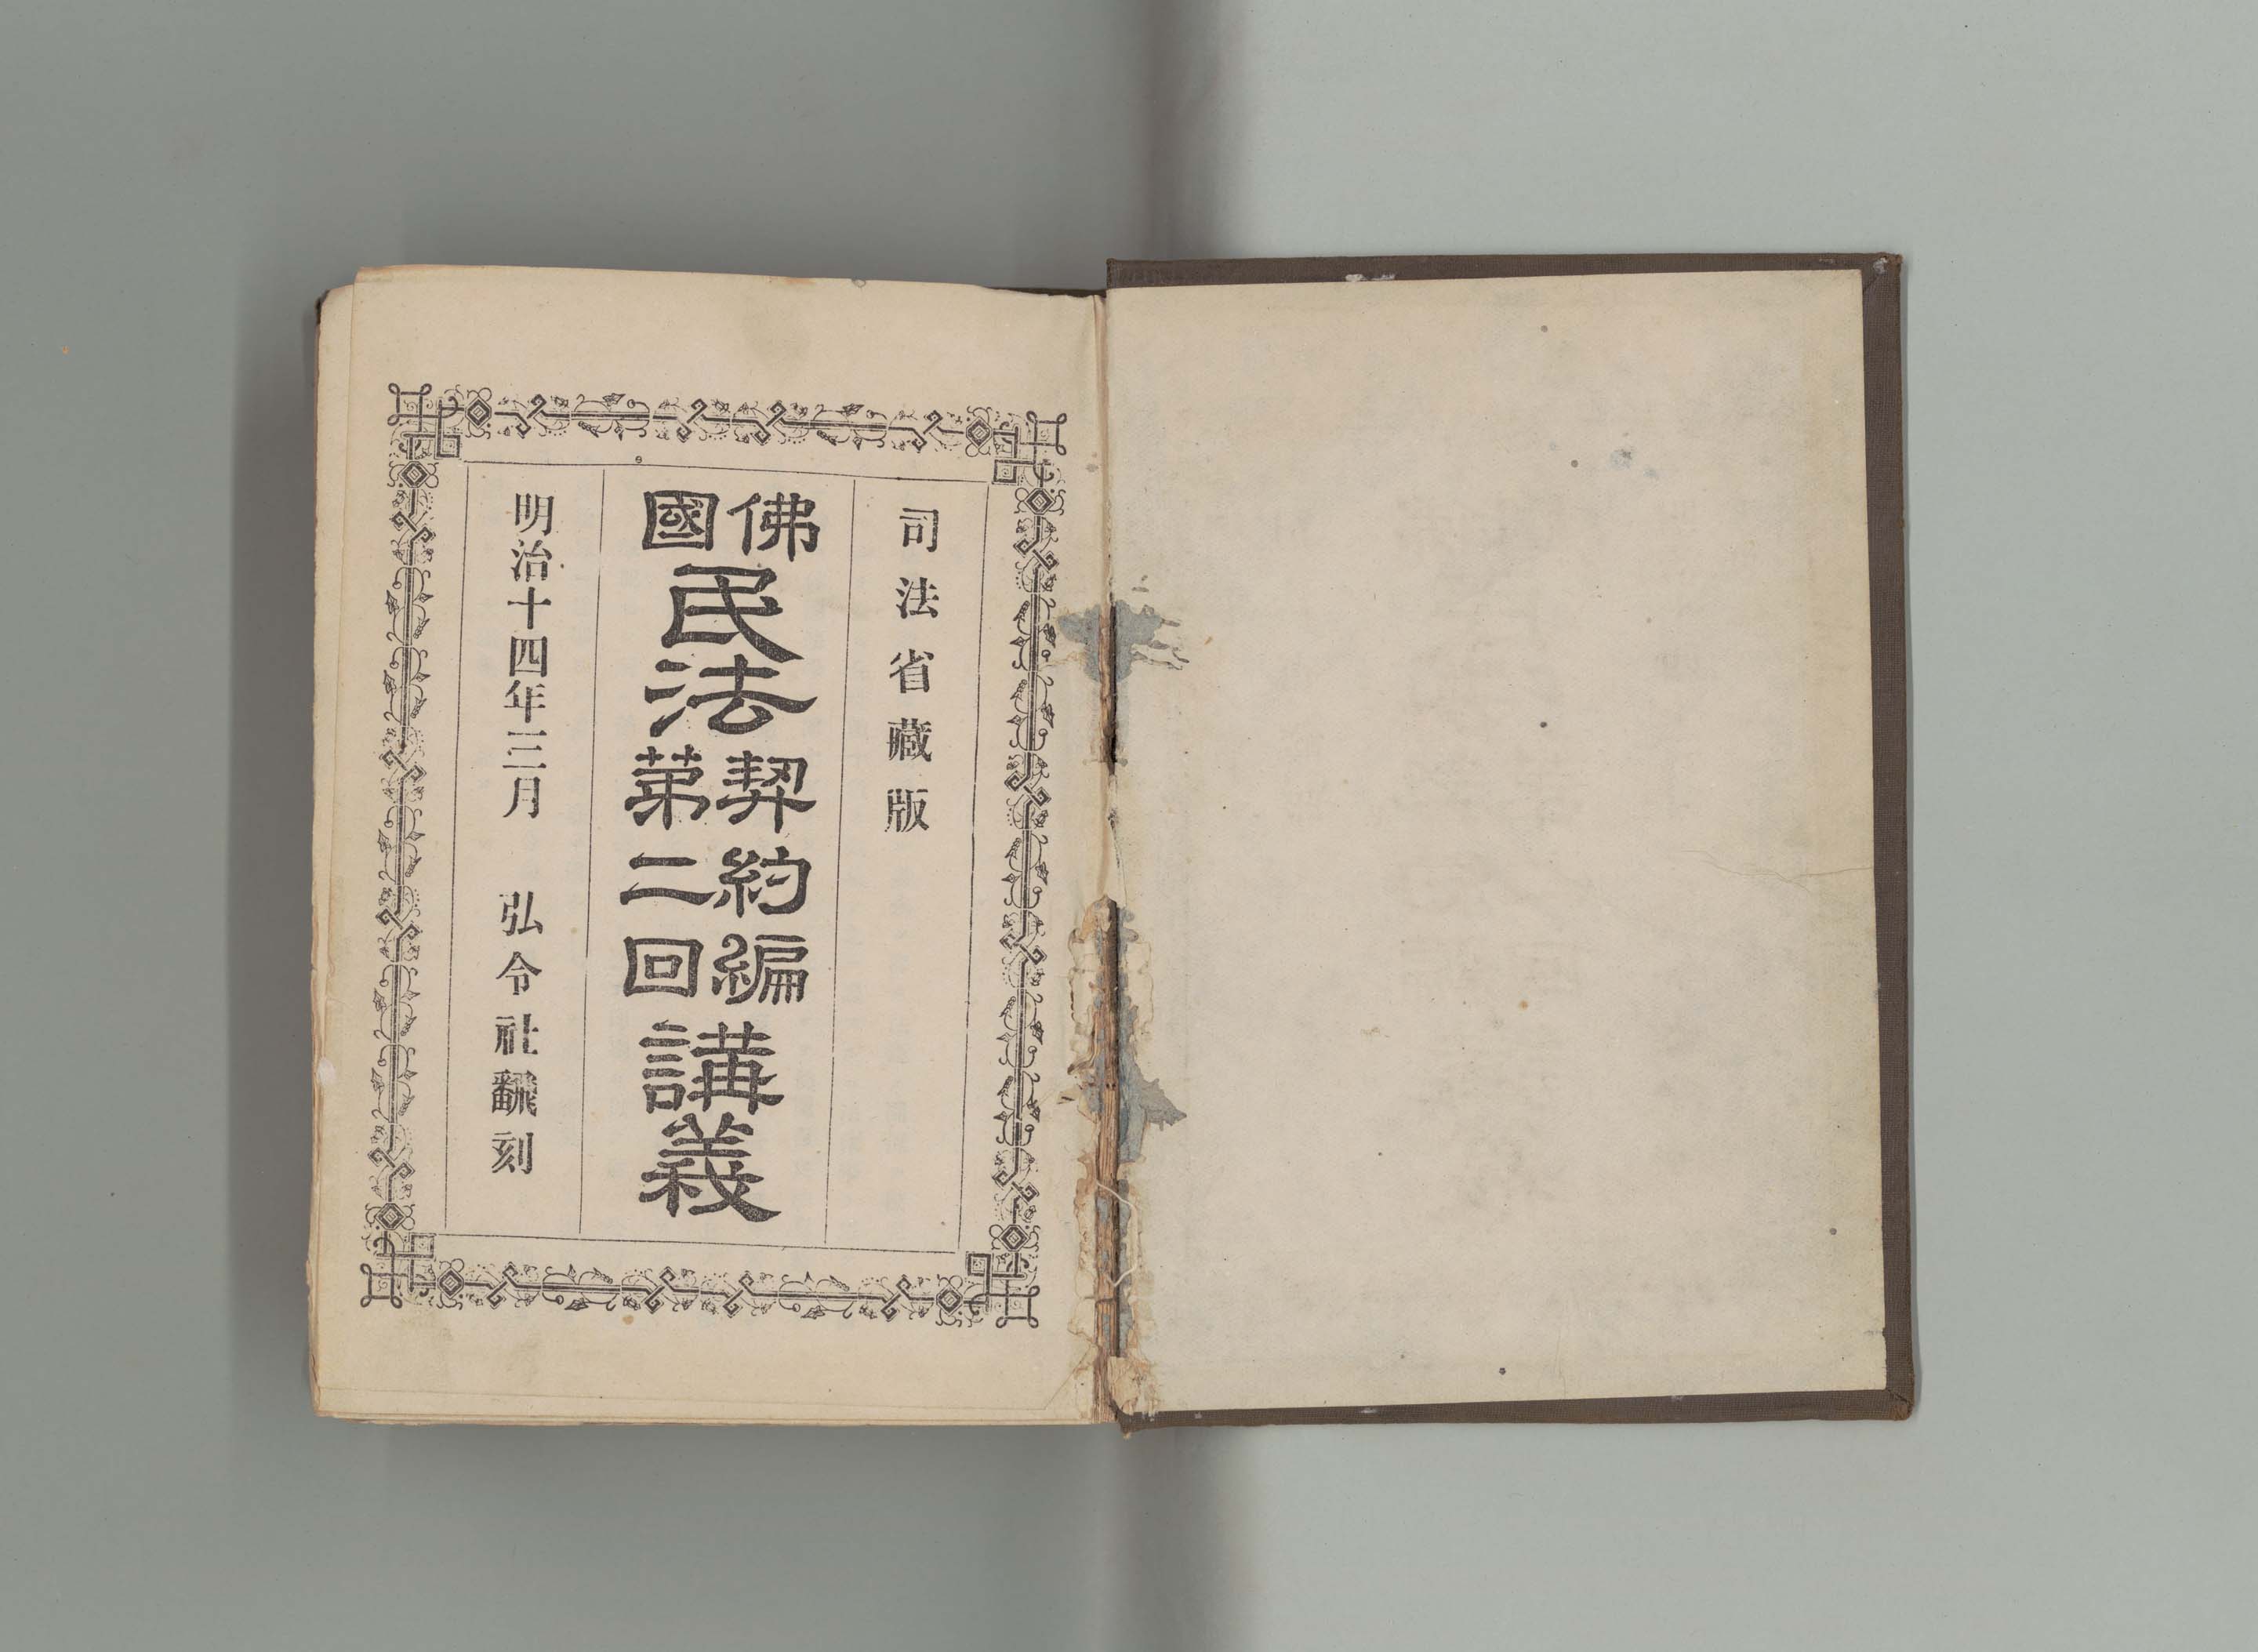 司法省藏版
佛國民法契約編第二回講義
明治十四年三月 弘令社飜刻